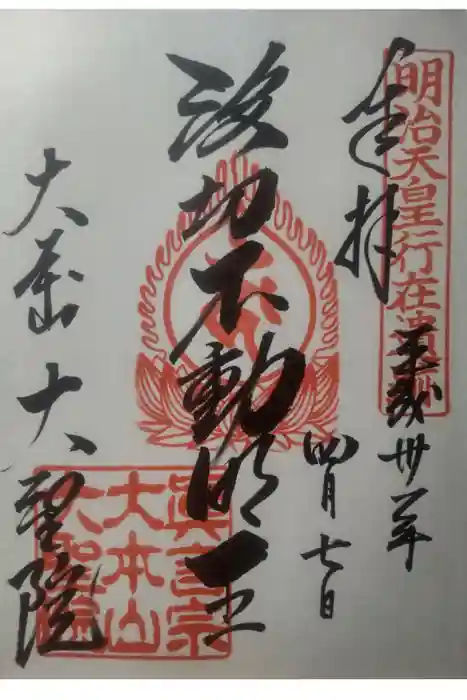 明治天皇行在遺跡
奉拝
平成卅一年
四月七日
波切不動明王
大本山 大聖院
真言宗
大本山
大聖院